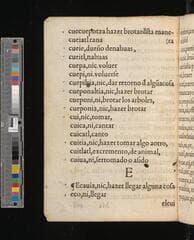 cuecuepotza, hazer brotar dista mane-
cueiatl rana
curie, dueño de nahuas,
cueitl, nahuas
cuepa, nic, voluer
cuepi, ni, voluerse
cuepilia, nic, dar retorno d algũa cosa
cueponaltia, nic, hazer brotar
cueponi, ni, brotar los arboles,
cueponia, nic, hazer brotar
cui, nic, tomar,
cuica, ni, cantar
cuicatl, canto
cuitia, nic, hazer tomar algo a otro,
cuitlatl, excremento, de animal,
cuiua, ni, ser tomado o asido
E
Ecauia, nic, hazer llegar alguna cosa
eco, ni, llegar
elcui